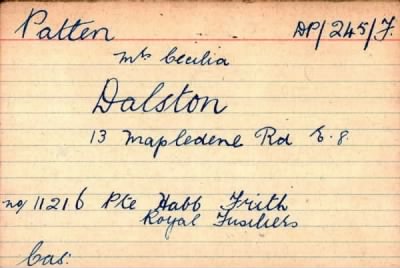 Patten DP/245/F.
Mrs Cecilia
Dalston
13 Mapledene Rd E.8.
no/ 11216 Pte Habb Frith
Royal Fusiliers
Cas: